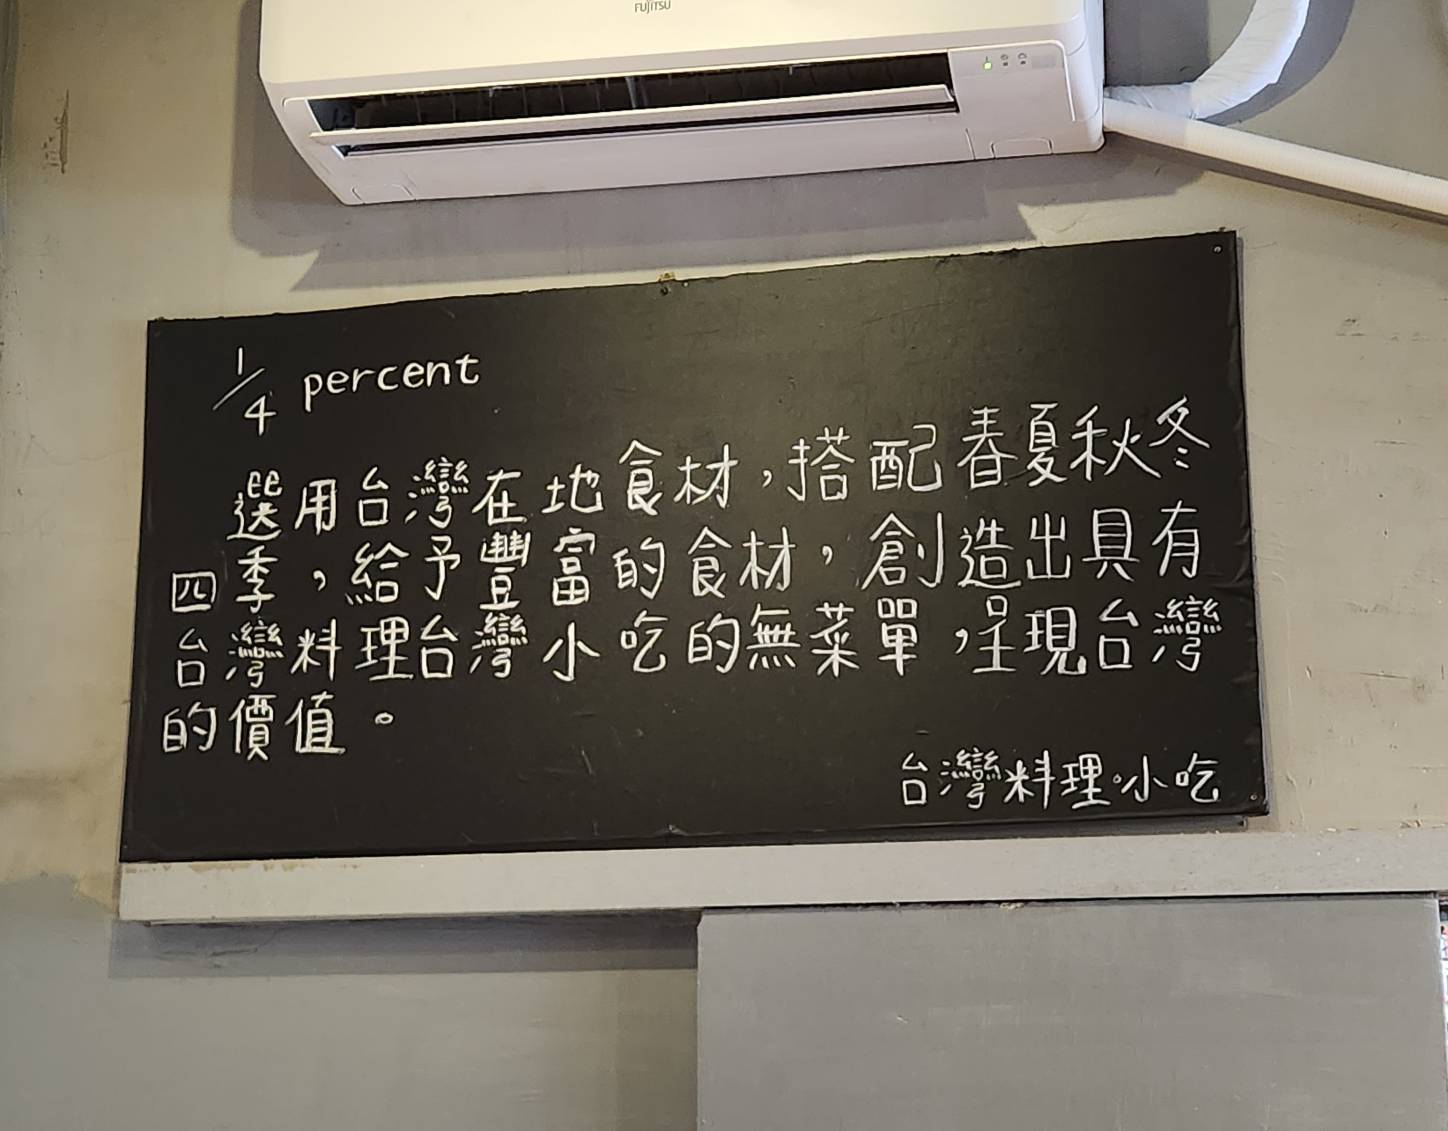 FUJITSU
1/4 percent
選用台灣在地食材，搭配春夏秋冬
四季，給予豐富的食材，創造出具有
台灣料理台灣小吃的無菜單，呈現台灣
的價值。
台灣料理·小吃